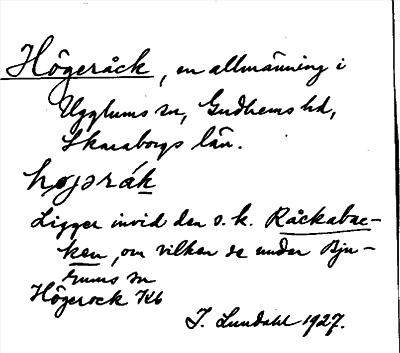 Högeråck, en allmänning i
Ugglums sn, Gudhems hd,
Skaraborgs län.
högəråk
Ligger invid den s. k. Råckabac-
ken, om vilken se under Bju-
rums sn
Högerock Kb
J. Lundahl 1927.